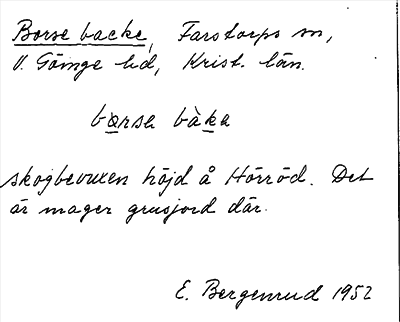 Borse backe, Farstorps sn,
V. Göinge hd, Krist. län.
bo̲rsə bàka̲
skogbevuxen höjd å Hörröd. Det
är mager grusjord där.
E. Bergenrud 1952